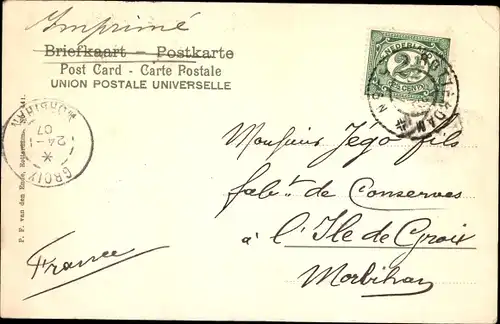 Imprimé
Briefkaart — Postkarte
Post Card - Carte Postale
UNION POSTALE UNIVERSELLE
NEDERLAND
2½
CENT
ROTTERDAM
MORBIHAN
24-1
07
GROIX
P. F. van den Ende, Rotterdam.
Monsieur Jégo fils
fabt. de Conserves
à l'Ile de Groix
Morbihan
France